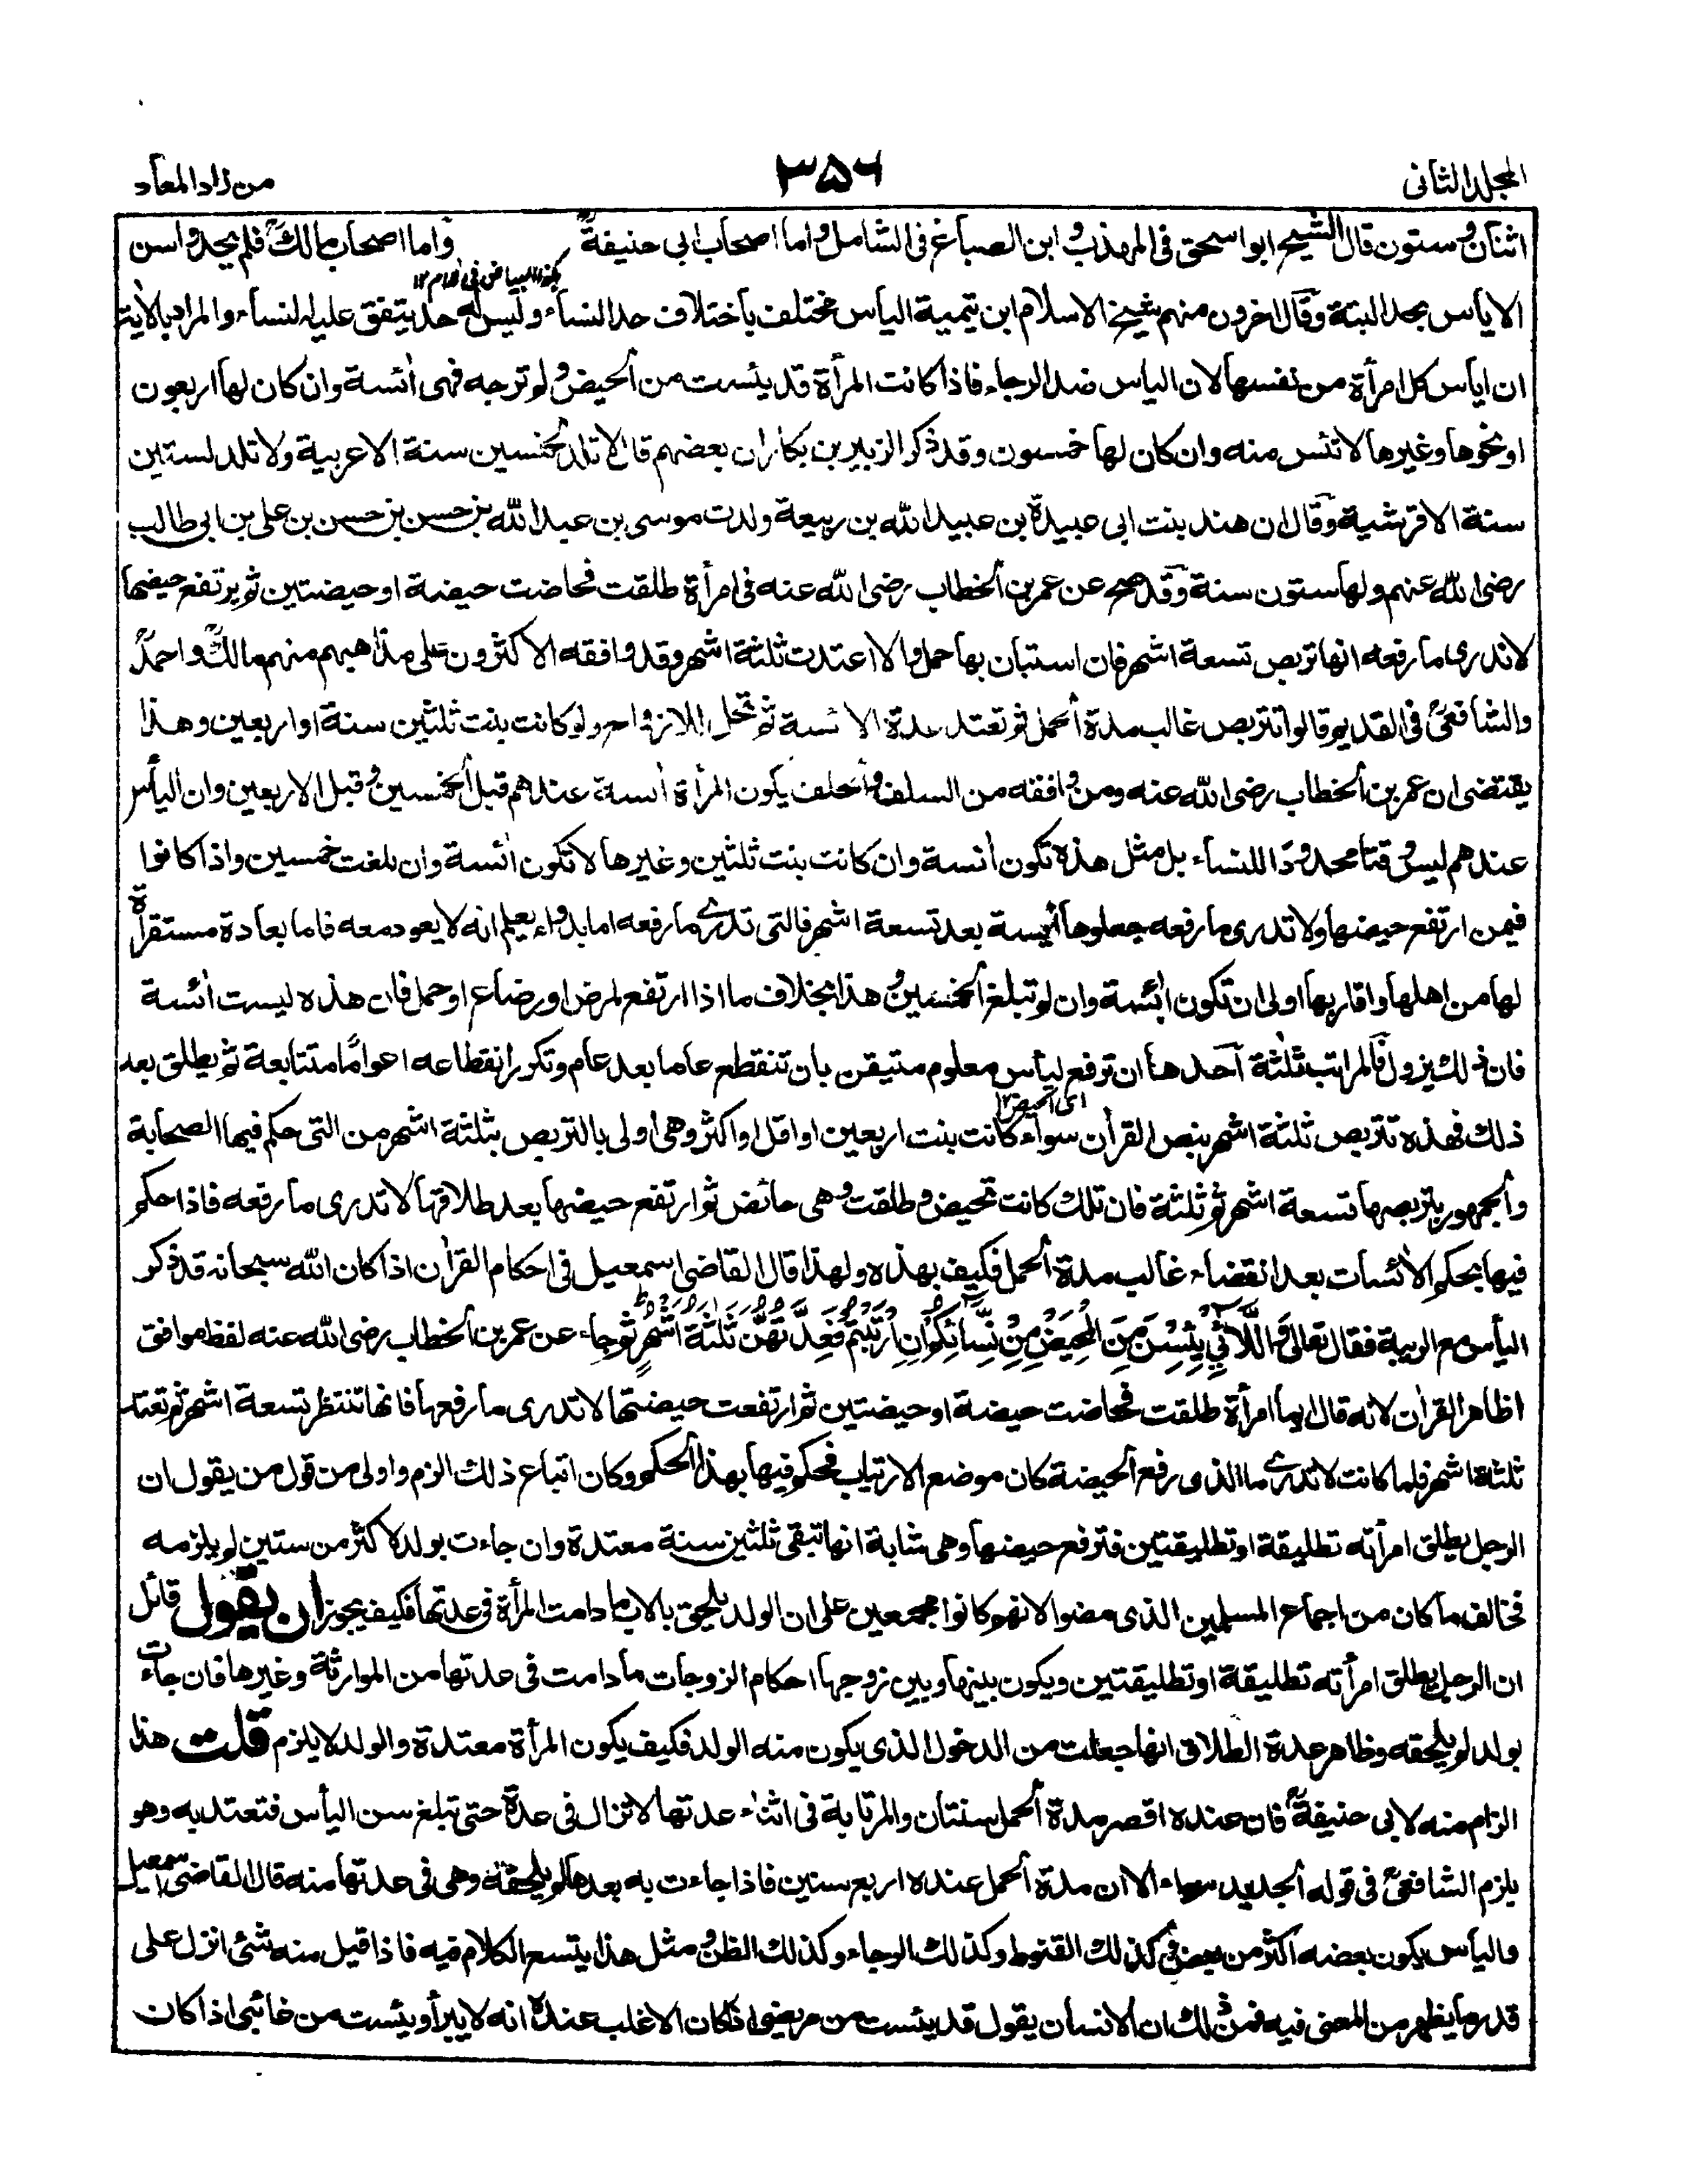 المجلد الثانى
٣٥٦
من زاد المعاد
اثنان وستون قال الشيخ ابو اسحق فى المهذب وابن الصباغ فى الشامل واما اصحاب ابى حنيفة واما اصحاب مالك فلم يحدوا سن
الاياس بحد البتة وقال اخرون منهم شيخ الاسلام ابن تيمية الياس مختلف باختلاف حد النساء وليس له حد يتفق عليه النساء والمراد بالاية
ان اياس كل امرأة من نفسها لان الياس ضد الرجاء فاذا كانت المرأة قد يئست من الحيض ولم ترجه فهى ائسة وان كان لها اربعون
او نحوها وغيرها لا تئس منه وان كان لها خمسون وقد ذكر الزبير بن بكار ان بعضهم قال لا تلد لخمسين سنة الا عربية ولا تلد لستين
سنة الا قرشية وقال ان هند بنت ابى عبيدة بن عبيد الله بن ربيعة ولدت موسى بن عبد الله بن حسن بن حسن بن على بن ابى طالب
رضى الله عنهم ولها ستون سنة وقد صح عن عمر بن الخطاب رضى الله عنه فى امرأة طلقت فحاضت حيضة او حيضتين ثم يرتفع حيضها
لا تدرى ما رفعه انها تربص تسعة اشهر فان استبان بها حمل والا اعتدت ثلثة اشهر وقد وافقه الاكثرون على مذاهبهم منهم مالك واحمد
والشافعى فى القديم قالوا تتربص غالب مدة الحمل ثم تعتد عدة الائسة ثم تحل للازواج ولو كانت بنت ثلثين سنة او اربعين وهذا
يقتضى ان عمر بن الخطاب رضى الله عنه ومن وافقه من السلف والخلف يكون المرأة ائسة عندهم قبل الخمسين وقبل الاربعين وان اليأس
عندهم ليس وقتا محدودا للنساء بل مثل هذه تكون ائسة وان كانت بنت ثلثين وغيرها لا تكون ائسة وان بلغت خمسين واذا كانوا
فيمن ارتفع حيضها ولا تدرى ما رفعه جعلوها ائسة بعد تسعة اشهر فالتى تدرى ما رفعه اما بدواء يعلم انه لا يعود معه فاما بعادة مستقرة
لها من اهلها واقاربها اولى ان تكون ائسة وان لم تبلغ الخمسين وهذا بخلاف ما اذا ارتفع لمرض او رضاع او حمل فان هذه ليست ائسة
فان ذلك يزول فالمراتب ثلثة احدها ان ترفع ليأس معلوم متيقن بان تنقطع عاما بعد عام وتكرر انقطاعه اعواما متتابعة ثم يطلق بعد
اى الحيض ١٢
ذلك فهذه تتربص ثلثة اشهر بنص القرأن سواء كانت بنت اربعين او اقل او اكثر وهى اولى بالتربص بثلثة اشهر من التى حكم فيها الصحابة
والجمهور بتربصها تسعة اشهر ثم ثلثة فان تلك كانت تحيض وطلقت وهى حائض ثم ارتفع حيضها بعد طلاقها لا تدرى ما رفعه فاذا حكم
فيها بحكم الأئسات بعد انقضاء غالب مدة الحمل فكيف بهذه ولهذا قال القاضى اسمعيل فى احكام القرأن اذا كان الله سبحانه قد ذكر
اليأس مع الريبة فقال تعالى وَاللَّائِي يَئِسْنَ مِنَ الْمَحِيضِ مِنْ نِّسَائِكُمْ إِنِ ارْتَبْتُمْ فَعِدَّتُهُنَّ ثَلٰثَةُ أَشْهُرٍ ثم جاء عن عمر بن الخطاب رضى الله عنه لفظ موافق
لظاهر القرأن لانه قال ايما امرأة طلقت فحاضت حيضة او حيضتين ثم ارتفعت حيضتها لا تدرى ما رفعها فانها تنتظر تسعة اشهر ثم تعتد
ثلثة اشهر فلما كانت لا تدرى ما الذى رفع الحيضة كان موضع الارتياب فحكم فيها بهذا الحكم وكان اتباع ذلك الزم واولى من قول من يقول ان
الرجل يطلق امرأته تطليقة او تطليقتين فترفع حيضها وهى شابة انها تبقى ثلثين سنة معتدة وان جاءت بولد لاكثر من سنتين لم يلزمه
فخالف ما كان من اجماع المسلمين الذى مضوا لانهم كانوا مجمعين على ان الولد يلحق بالاب ما دامت المرأة فى عدتها فكيف يجوز ان يقول قائل
ان الرجل يطلق امرأته تطليقة او تطليقتين ويكون بينها وبين زوجها احكام الزوجات ما دامت فى عدتها من الموارثة وغيرها فان جاءت
بولد لم يلحقه وظاهر عدة الطلاق انها جعلت من الدخول الذى يكون منه الولد فكيف يكون المرأة معتدة والولد لا يلزم قلت هذا
الزام منه لابى حنيفة فان عنده اقصر مدة الحمل سنتان والمرتابة فى اثناء عدتها لا تزال فى عدة حتى تبلغ سن اليأس فتعتد به وهو
يلزم الشافعى فى قوله الجديد سواء الا ان مدة الحمل عنده اربع سنين فاذا جاءت به بعدها لم يلحقه وهى فى عدتها منه قال القاضى اسمعيل
واليأس يكون بعضه اكثر من بعض وكذلك القنوط وكذلك الرجاء وكذلك الظن ومثل هذا يتسع الكلام فيه فاذا قيل منه شئ انزل على
قدر ما يظهر من المعنى فيه فمن ذلك ان الانسان يقول قد يئست من مريضى اذا كان الاغلب عنده انه لا يبرأ ويئست من غائبى اذا كان